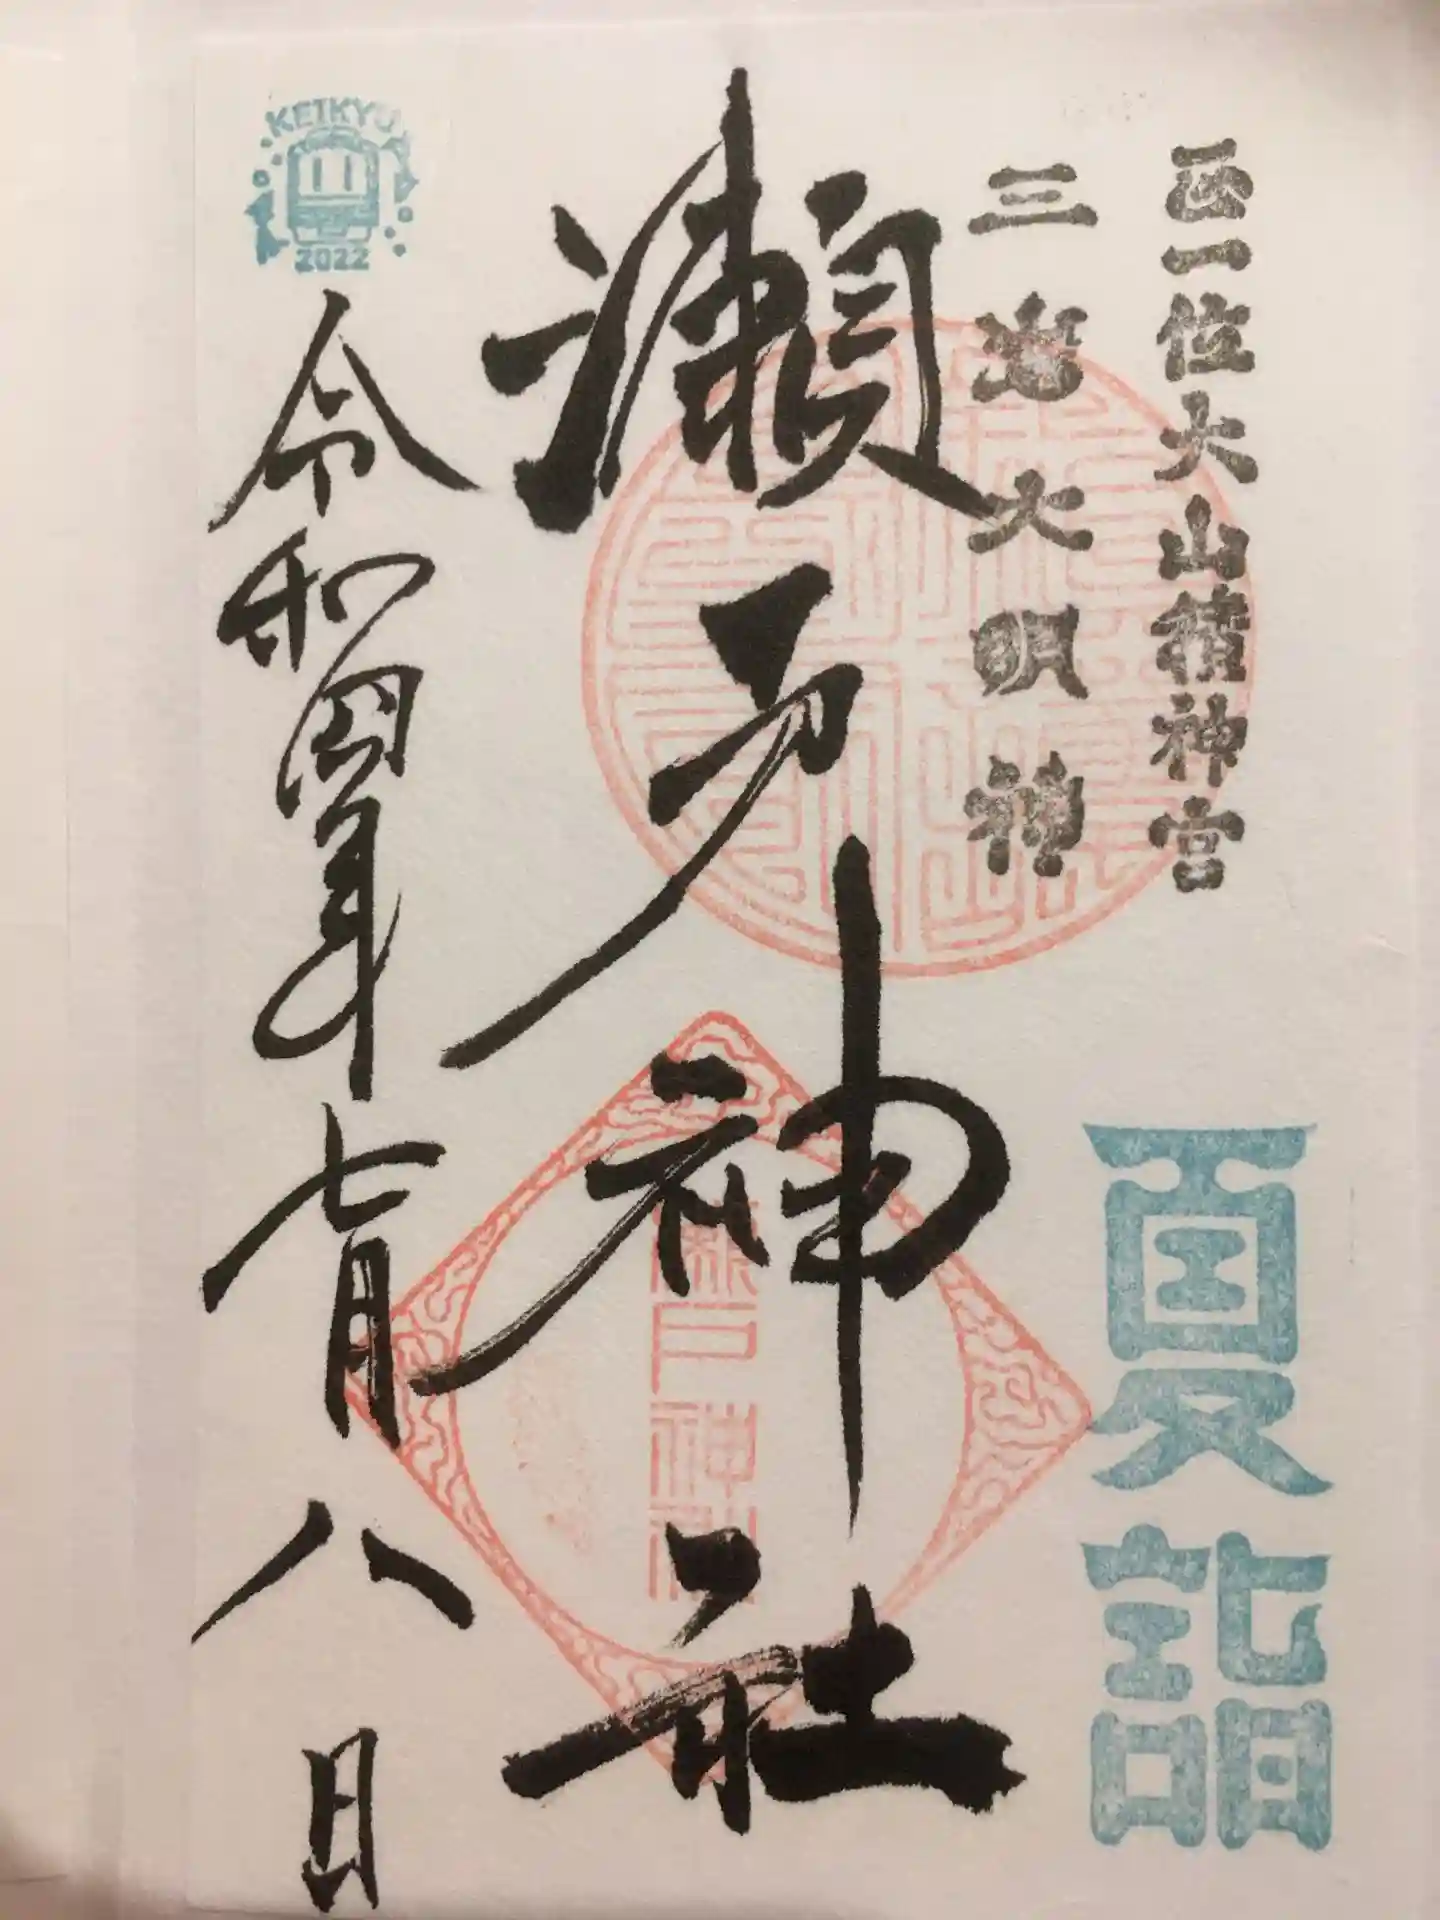 正一位大山積神宮
三嶌大明神
夏詣
瀬戸神社
瀬戸神社
KEIKYU
2022
令和四年七月八日